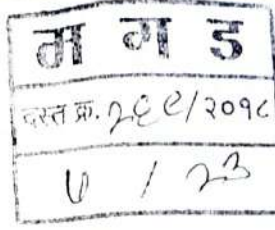 म ग ड
दस्त क्र. २६९/२०१८
५ / २३